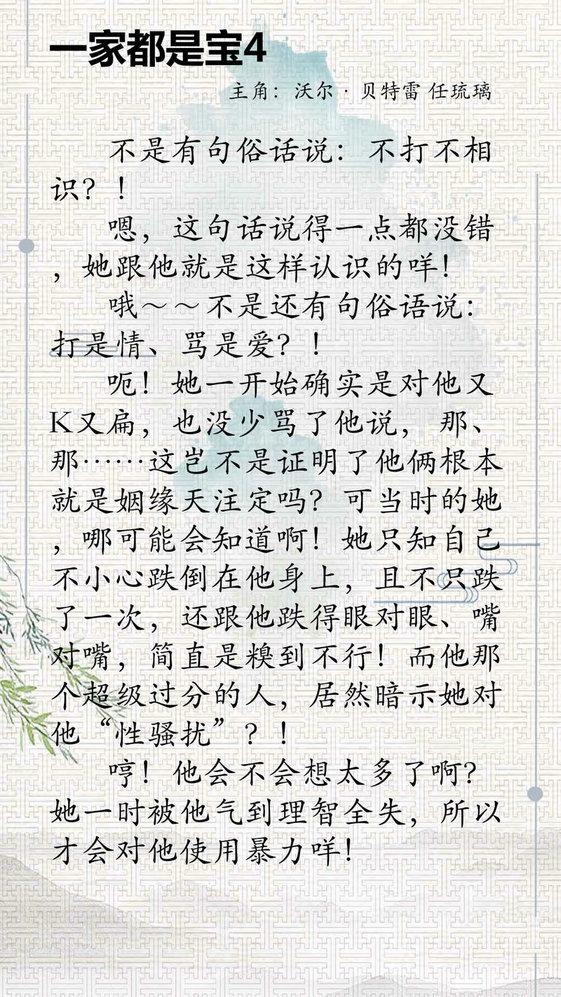 一家都是宝4
主角：沃尔·贝特雷 任琉璃
不是有句俗话说：不打不相
识？！
嗯，这句话说得一点都没错
，她跟他就是这样认识的咩！
哦～～不是还有句俗语说：
打是情、骂是爱？！
呃！她一开始确实是对他又
K又扁，也没少骂了他说， 那、
那……这岂不是证明了他俩根本
就是姻缘天注定吗？可当时的她
，哪可能会知道啊！她只知自己
不小心跌倒在他身上，且不只跌
了一次，还跟他跌得眼对眼、嘴
对嘴，简直是糗到不行！而他那
个超级过分的人，居然暗示她对
他“性骚扰”？！
哼！他会不会想太多了啊？
她一时被他气到理智全失，所以
才会对他使用暴力咩！